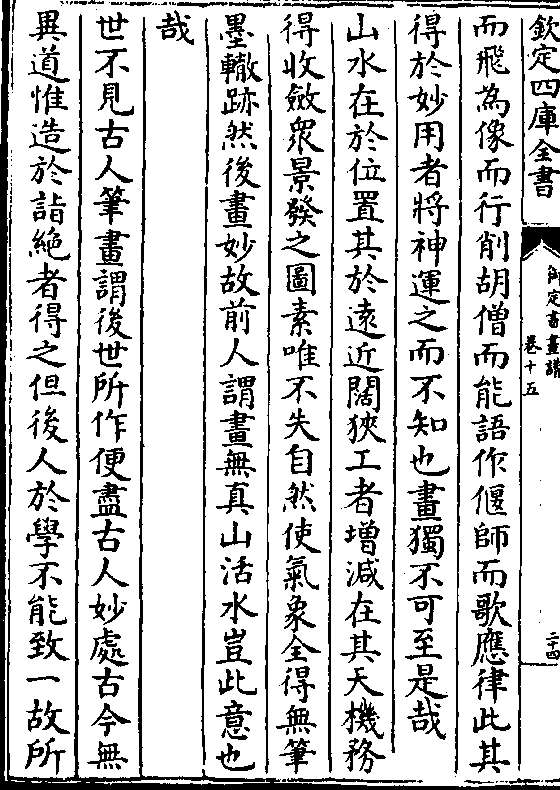 欽定四庫全書
御定書畫譜
卷十五
二十四
而飛為像而行削胡僧而能語作偃師而歌應律此其
得於妙用者將神運之而不知也畫獨不可至是哉
山水在於位置其於遠近闊狹工者增減在其天機務
得收斂衆景發之圖素唯不失自然使氣象全得無筆
墨轍跡然後畫妙故前人謂畫無真山活水豈此意也
哉
世不見古人筆畫謂後世所作便盡古人妙處古今無
異道惟造於詣絶者得之但後人於學不能致一故所